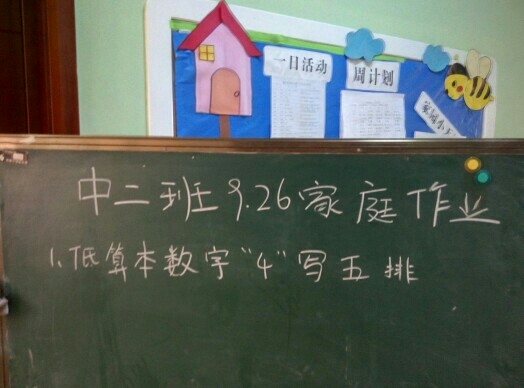 一日活动
周计划
中二班9.26家庭作业
1、低算本数字"4"写五排